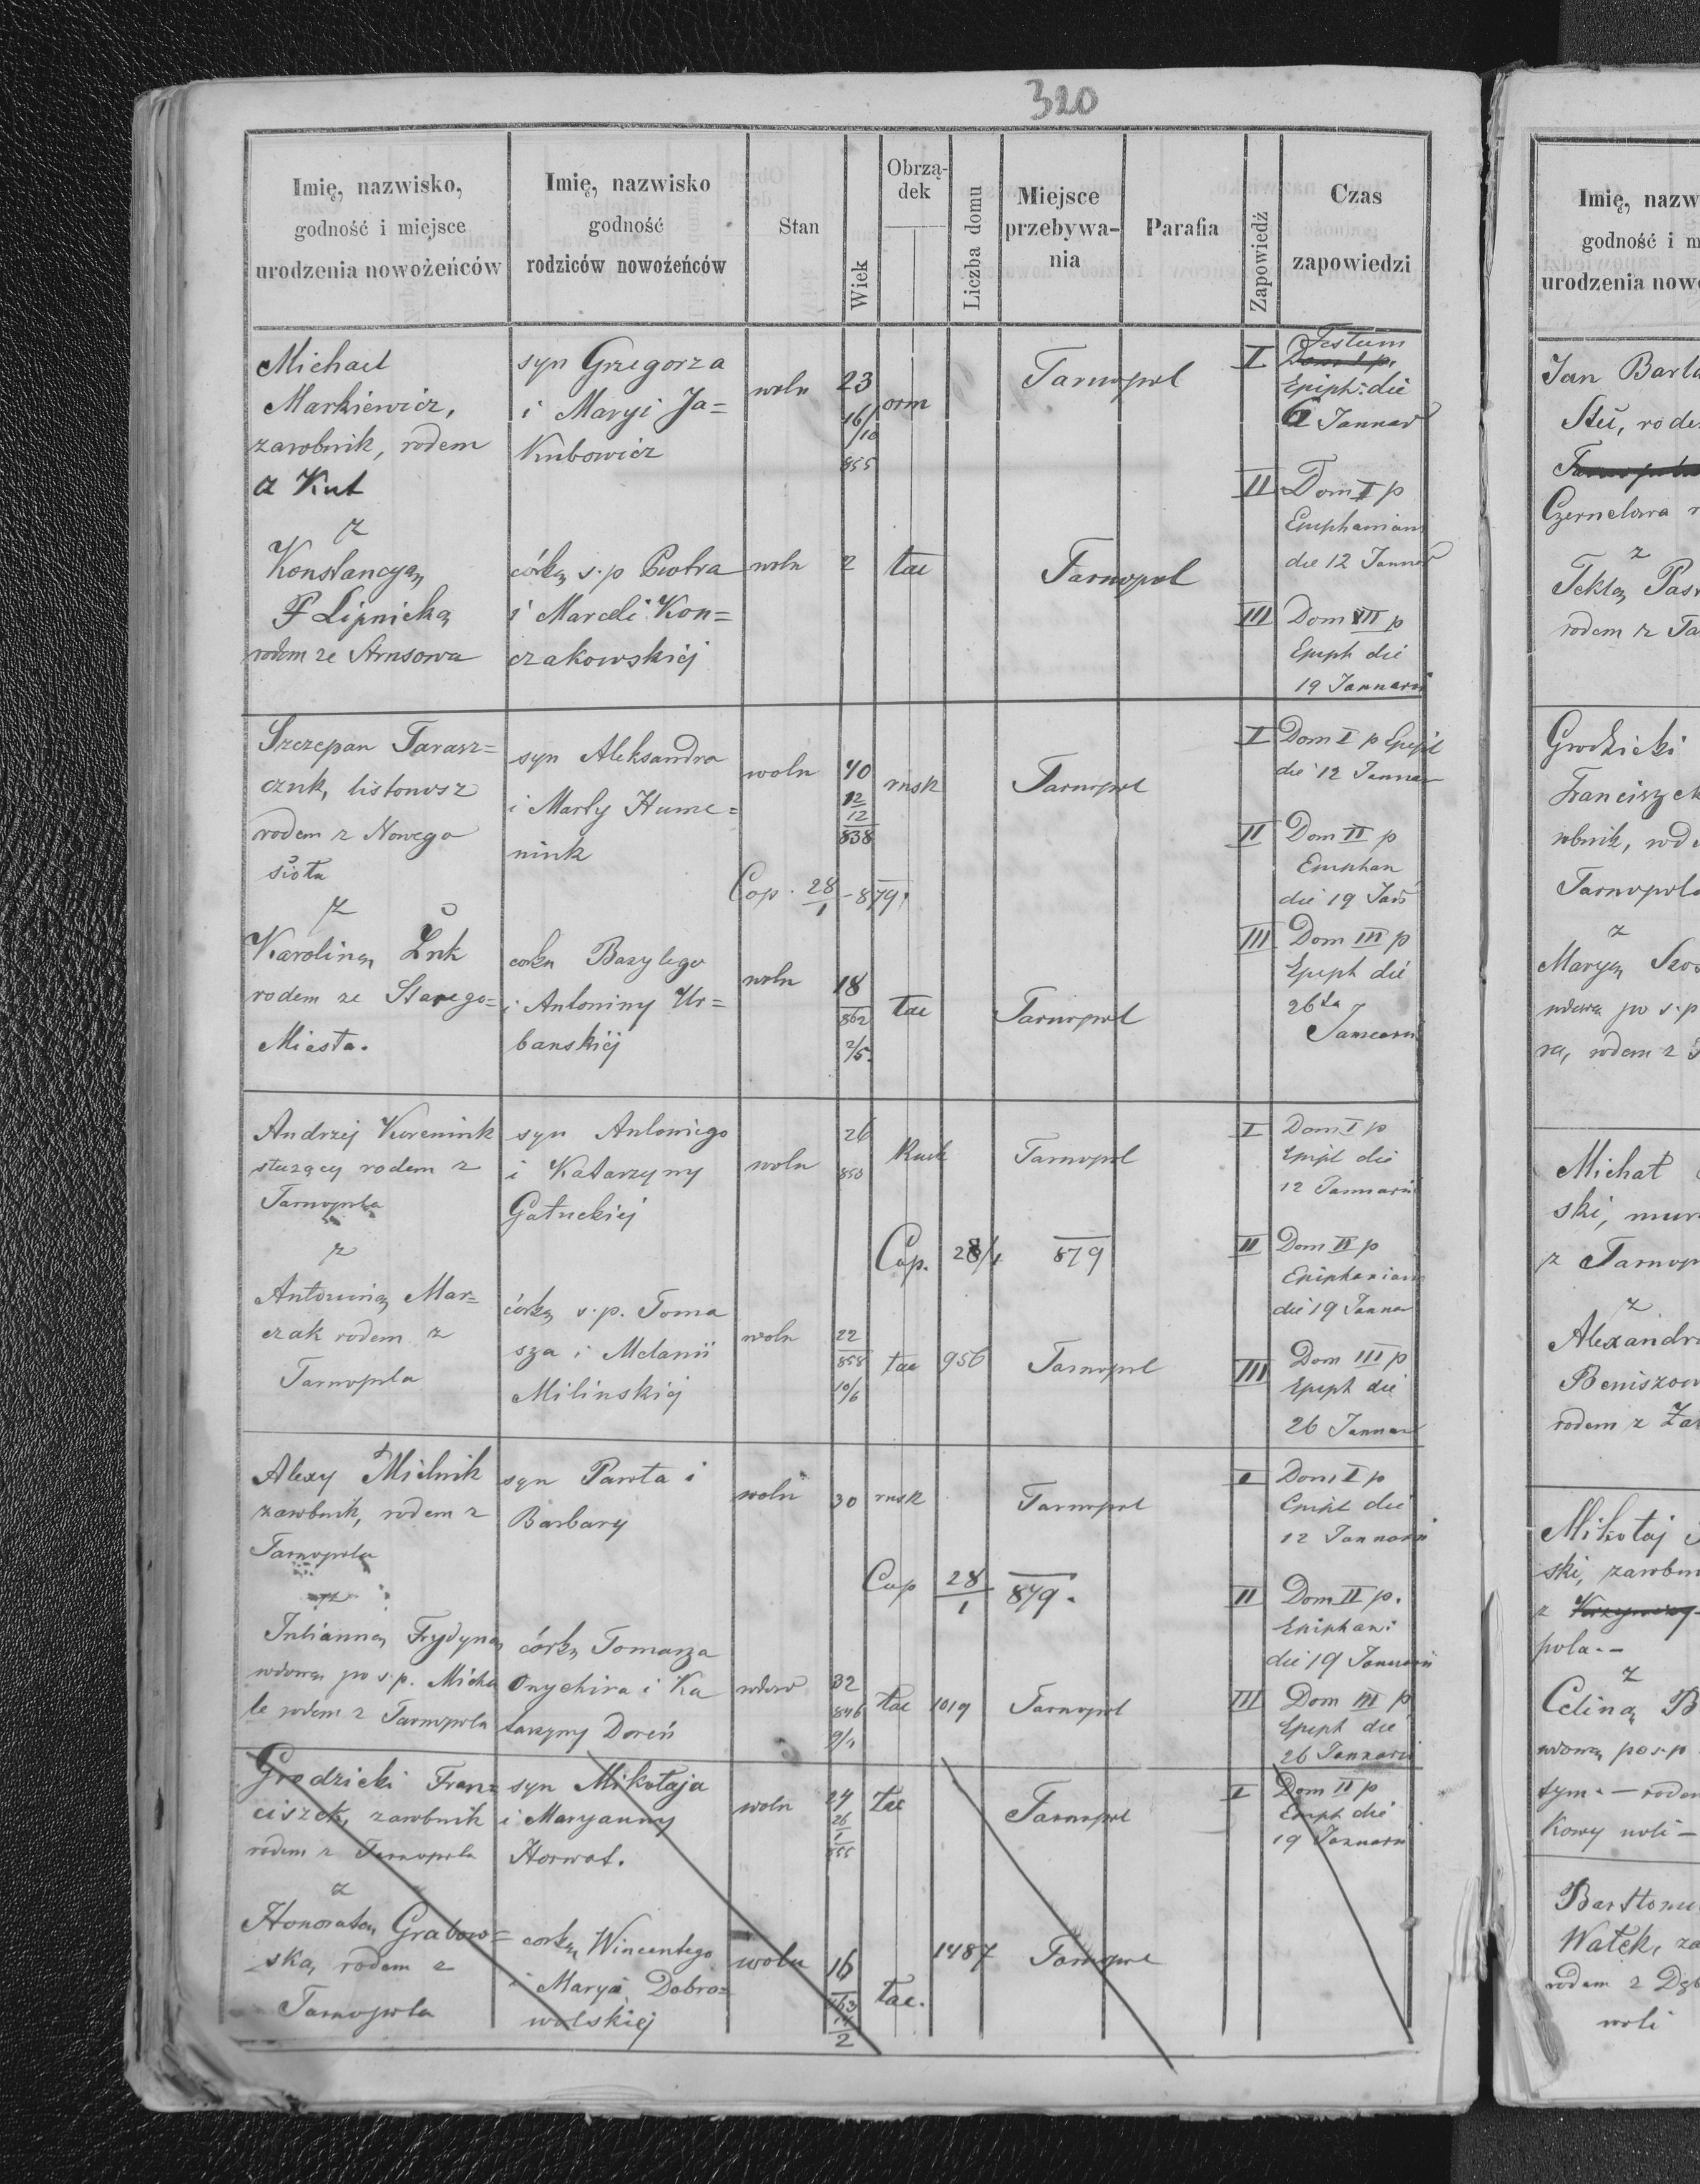 320
Imię, nazwisko,
godność i miejsce
urodzenia nowożeńców
Imię, nazwisko
godność
rodziców nowożeńców
Stan
Wiek
Obrzą-
dek
Liczba domu
Miejsce
przebywa-
nia
Parafia
Zapowiedź
Czas
zapowiedzi
Michael
Markiewicz,
zarobnik, rodem
z Kut
z
Konstancyą
Lipnicką
rodem ze
syn Grzegorza
i Maryi Ja=
kubowicz
córką s.p Piotra
i Marceli Kon=
czakowskiej
woln
woln
23
16/10
855
2
orm
łac
Tarnopol
Tarnopol
I
Festum
Epiph. die
6 Januar
II
Dom I p
Epiphaniam
die 12 Januar
III
Dom II p
Epiph die
19 Januarii
Szczepan Tarasz=
czuk, listonosz
rodem z Nowego
sioła
z
Karoliną Żuk
rodem ze Starego=
Miasta.
syn Aleksandra
i Marty Hume=
niuk
Cop. 28/1 - 879.
córką Bazylego
i Antoniny Ur=
banskiej
woln
woln
40
12
12
838
18
862
2/5.
rusk
łac
Tarnopol
Tarnopol
I
Dom I p Epiph
die 12 Januar
II
Dom II p
Epiphan
die 19 Jan
III
Dom III p
Epiph die
26ta
Januarii
Andrzej Koreniuk
służący rodem z
Tarnopola
z
Antoniną Mar=
czak rodem z
Tarnopola
syn Antoniego
i Katarzyny
Gałuckiej
córką s.p. Toma
sza i Melanii
Milinskiej
woln
woln
26
853
22
858
10/6
Rusk
Cop. 28/1 879
łac
956
Tarnopol
Tarnopol
I
Dom I p
Epiph die
12 Januarii
II
Dom II p
Epiphaniam
die 19 Januar
III
Dom III p
Epiph die
26 Januar
Alexy Mielnik
zarobnik, rodem z
Tarnopola
z
Julianną Frydyną
wdową po s.p. Micha
le rodem z Tarnopola
syn Pawła i
Barbary
córką Tomasza
Onychira i Ka
tarzyny Doreń
woln
wdow
30
32
846
9/1
rusk
Cop 28/1 879.
łac
1019
Tarnopol
Tarnopol
I
Dom I p
Epiph die
12 Januarii
II
Dom II p.
Epiphani
die 19 Januarii
III
Dom III p
Epiph die
26 Januarii
Grodzicki Fran=
ciszek, zarobnik
rodem z Tarnopola
z
Honoratą Grabow=
ską, rodem z
Tarnopola
syn Mikołaja
i Maryanny
Horwat.
córką Wincentego
i Maryi Dobro=
wolskiej
woln
woln
24
26
1
855
16
863
14
2
łac
łac.
1487
Tarnopol
Tarnopol
I
Dom II p
Epiph die
19 Januarii
Imię, nazw
godność i m
urodzenia nowo
Jan Barta
rode
Czernelowa
z
Teklą Pas
rodem z Ta
Grodzicki
Franciszek
robnik, rod
Tarnopola
z
Maryą Szos
wdową po s.p
ra, rodem z
Michał
ski, mur
z Tarnop
z
Alexandr
Beniszow
rodem z Za
Mikołaj
ski, zarobn
z
pola.-
z
Celiną B
wdową po s.p
tym.- rodem
kowy woli -
Bartłom
Wałek, za
rodem z Dąb
woli